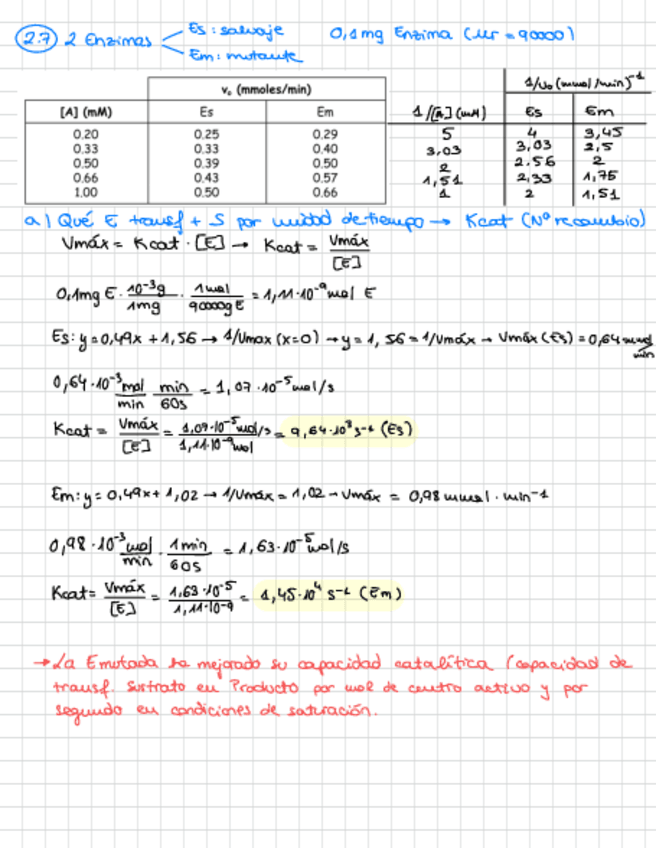 2.7 2 Enzimas Es: salvaje 0,1 mg Enzima (Mr = 90000)
Em: mutante
v₀ (mmoles/min) 1/v₀ (mmol/min)⁻¹
[A] (mM) Es Em 1/[A] (mM) Es Em
0.20 0.25 0.29 5 4 3,45
0.33 0.33 0.40 3,03 3,03 2,5
0.50 0.39 0.50 2 2.56 2
0.66 0.43 0.57 1,51 2,33 1,75
1.00 0.50 0.66 1 2 1,51
a) Qué E transf + S por unidad de tiempo → Kcat (Nº recambio)
Vmáx = Kcat · [E] → Kcat = Vmáx / [E]
0,1mg E · 10⁻³g / 1mg · 1mol / 90000g E = 1,11·10⁻⁹ mol E
Es: y = 0,49x + 1,56 → 1/Vmax (x=0) → y = 1,56 = 1/Vmáx → Vmáx (Es) = 0,64 mmol / min
0,64·10⁻³ mol / min · min / 60s = 1,07·10⁻⁵ mol/s
Kcat = Vmáx / [E] = 1,07·10⁻⁵ mol/s / 1,11·10⁻⁹ mol = 9,64·10³ s⁻¹ (Es)
Em: y = 0,49x + 1,02 → 1/Vmáx = 1,02 → Vmáx = 0,98 mmol · min⁻¹
0,98·10⁻³ mol / min · 1min / 60s = 1,63·10⁻⁵ mol/s
Kcat = Vmáx / [E] = 1,63·10⁻⁵ / 1,11·10⁻⁹ = 1,45·10⁴ s⁻¹ (Em)
→ La E mutada ha mejorado su capacidad catalítica (capacidad de
transf. Sustrato en Producto por mol de centro activo y por
segundo en condiciones de saturación.